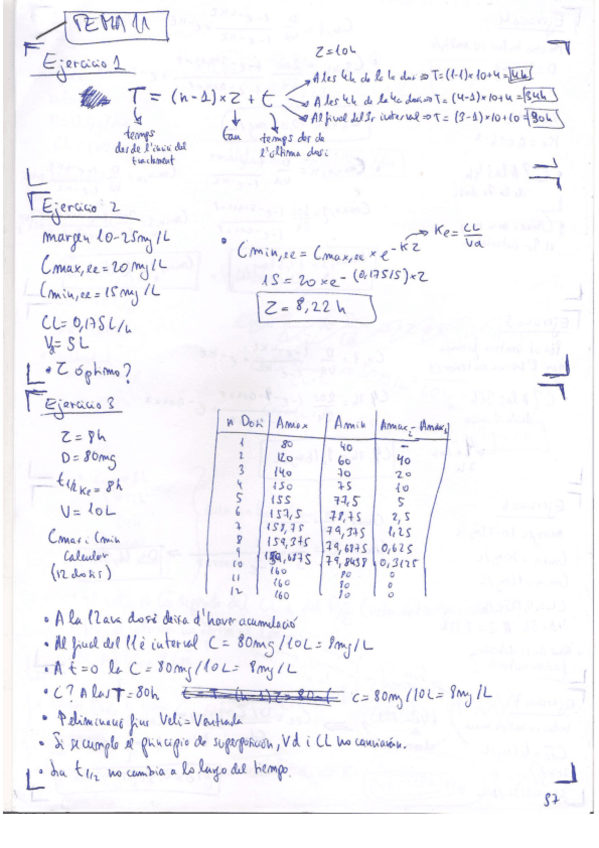 TEMA 11
Ejercicio 1
Z=10h
T = (n-1)×Z + t
A les 4h de la 1a dosi => T=(1-1)×10+4=4h
A les 4h de la 4a dosi => T=(4-1)×10+4=34h
Al final del 3r interval => T=(3-1)×10+10=30h
temps des de l'inici del tractament
tau
temps des de l'última dosi
Ejercicio 2
margen 10-25mg/L
Cmax,ee=20mg/L
Cmin,ee=15mg/L
CL=0,175L/h
Vd=5L
• Z óptimo?
• Cmin,ee = Cmax,ee × e^-KZ
Ke = CL/Vd
15=20×e^-(0,175/5)×Z
Z=8,22h
Ejercicio 3
Z=8h
D=80mg
t1/2 Ke=8h
V=10L
Cmax i Cmin
calcular
(12 dosis)
n Dosi Amax Amin Amax2-Amax1
1 80 40 -
2 120 60 40
3 140 70 20
4 150 75 10
5 155 77,5 5
6 157,5 78,75 2,5
7 158,75 79,375 1,25
8 159,375 79,6875 0,625
9 159,6875 79,8438 0,3125
10 160 80 0
11 160 80 0
12 160 80 0
• A la 11ava dosi deixa d'haver acumulació
• Al final del 11è interval C = 80mg/10L = 8mg/L
• A t=0 la C = 80mg/10L = 8mg/L
• C? A las T=80h C=80mg/10L=8mg/L
• eliminació fins Veli=Ventrada
• Si se cumple el principio de superposición, Vd i CL no canviarán.
• La t1/2 no cambia a lo largo del tiempo.
37